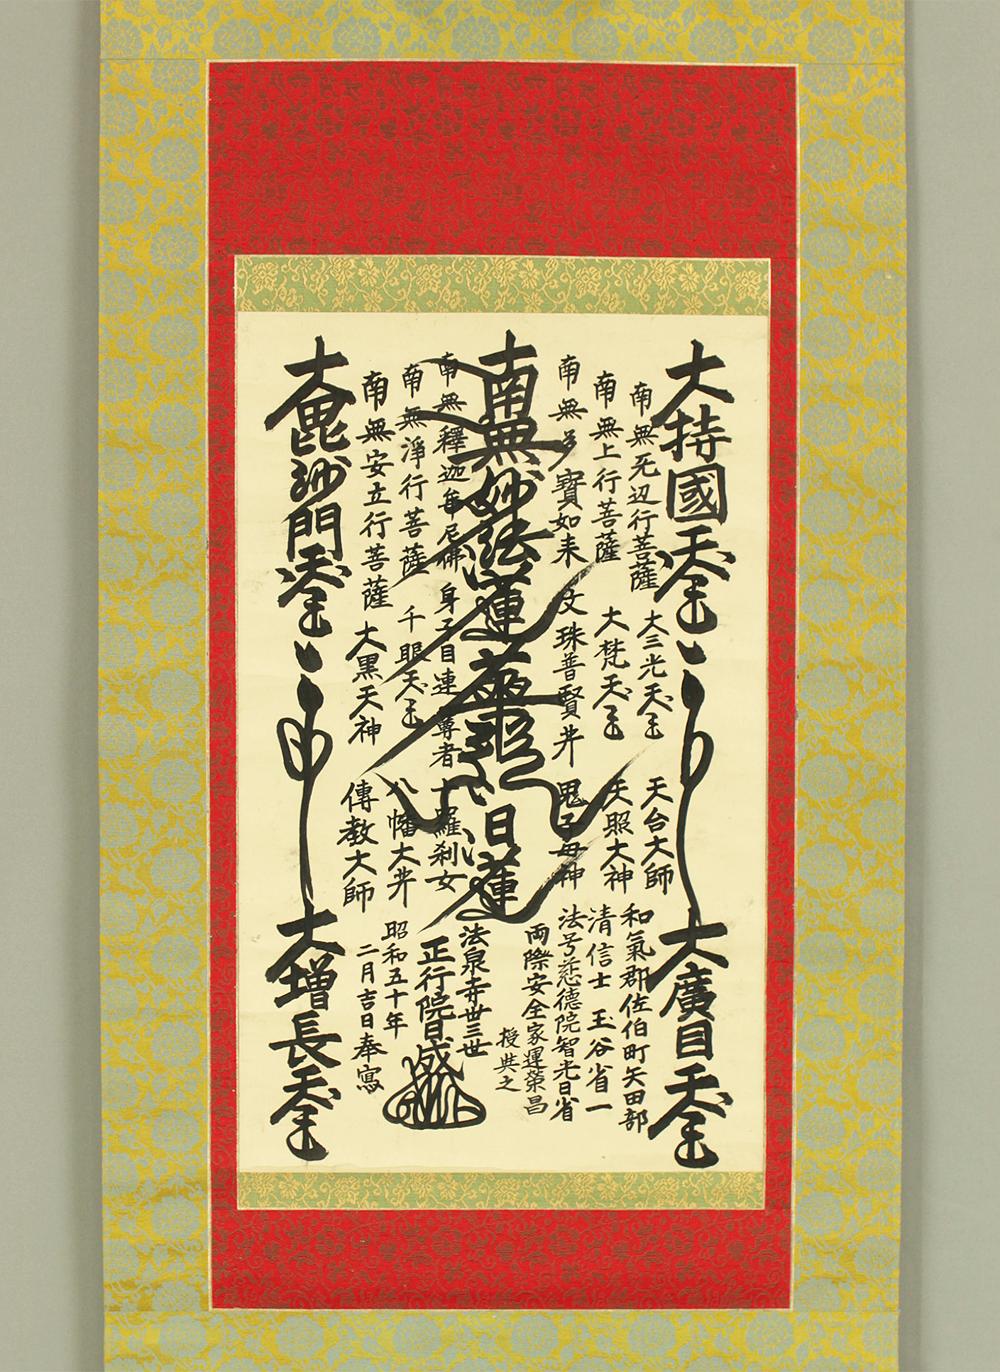 大持國天王
大廣目天王
南無无辺行菩薩
大三光天王
天台大師
南無上行菩薩
大梵天王
天照大神
南無多寳如来
文珠普賢井
鬼子母神
南無妙法蓮華經
日蓮
南無釋迦牟尼佛
身子目連尊者
十羅刹女
南無淨行菩薩
千眼天王
八幡大井
南無安立行菩薩
大黒天神
傳教大師
大毘沙門天王
大増長天王
和氣郡佐伯町矢田部
清信士 玉谷省一
法号慈德院智光日省
両際安全家運荣昌
授與之
法泉寺丗三世
正行院日盛
昭和五十年
二月吉日奉寫